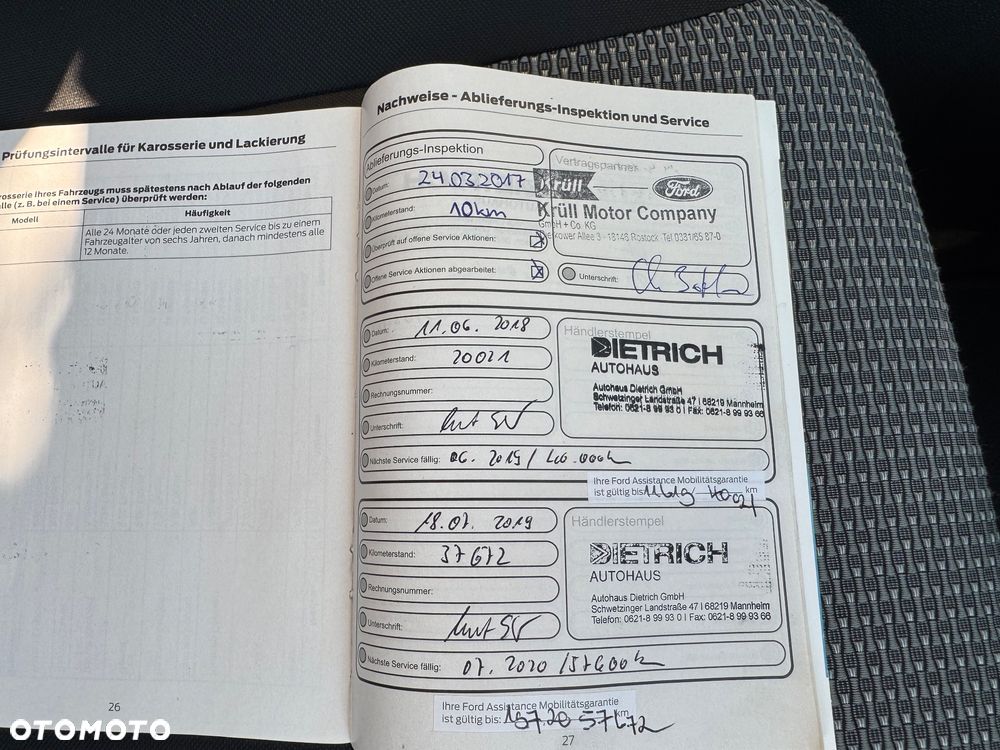 Prüfungsintervalle für Karosserie und Lackierung
rosserie Ihres Fahrzeugs muss spätestens nach Ablauf der folgenden
lle (z. B. bei einem Service) überprüft werden:
Modell
Häufigkeit
Alle 24 Monate oder jeden zweiten Service bis zu einem
Fahrzeugalter von sechs Jahren, danach mindestens alle
12 Monate.
26
Nachweise - Ablieferungs-Inspektion und Service
Ablieferungs-Inspektion
Datum: 24.03.2017
Kilometerstand: 10km
Überprüft auf offene Service Aktionen:
Offene Service Aktionen abgearbeitet:
Vertragspartner
Krüll
Ford
Krüll Motor Company
GmbH + Co. KG
Allee 3 - 18146 Rostock Tel 0381/65 87-0
Unterschrift:
Datum: 11.06.2018
Kilometerstand: 20021
Rechnungsnummer:
Unterschrift:
Nächste Service fällig: 06.2019/40.000k
Händlerstempel
DIETRICH
AUTOHAUS
Autohaus Dietrich GmbH
Schwetzinger Landstraße 47 | 68219 Mannheim
Telefon: 0621-8 99 93 0 | Fax: 0621-8 99 93 66
Ihre Ford Assistance Mobilitätsgarantie
ist gültig bis: km
Datum: 18.07.2019
Kilometerstand: 37672
Rechnungsnummer:
Unterschrift:
Nächste Service fällig: 07.2020/57600k
Händlerstempel
DIETRICH
AUTOHAUS
Autohaus Dietrich GmbH
Schwetzinger Landstraße 47 | 68219 Mannheim
Telefon: 0621-8 99 93 0 | Fax: 0621-8 99 93 66
Ihre Ford Assistance Mobilitätsgarantie
ist gültig bis: 57672 km
27
OTOMOTO